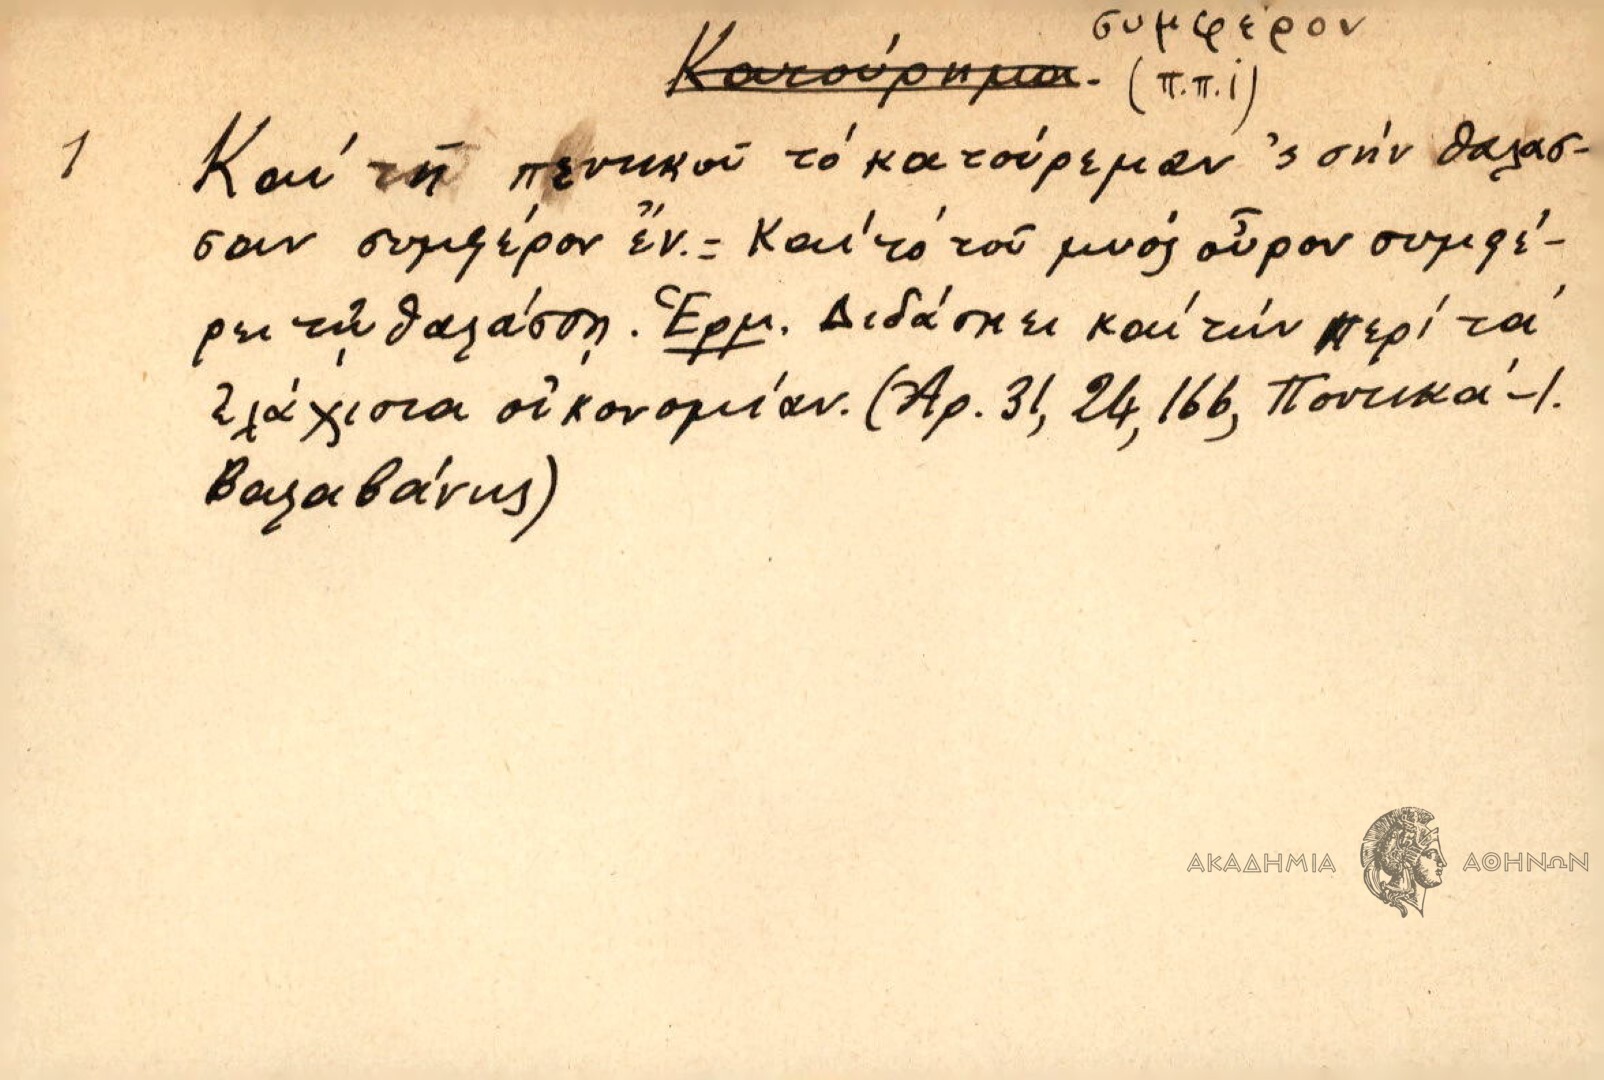 συμφέρον
Κατούρημα. (π.π.ἰ)
1 Καί τῆ πεντικοῦ τό κατούρεμαν 'ς σήν θαλασ-
σαν συμφέρον ἔν. = Καί τό τοῦ μυός οὖρον συμφέ-
ρει τῇ θαλάσσῃ. Ἑρμ. Διδάσκει καί τήν περί τά
ἐλάχιστα οἰκονομίαν. (Ἀρ. 31, 24, 166, Ποντικά - Ι.
Βαλαβάνης)
ΑΚΑΔΗΜΙΑ ΑΘΗΝΩΝ